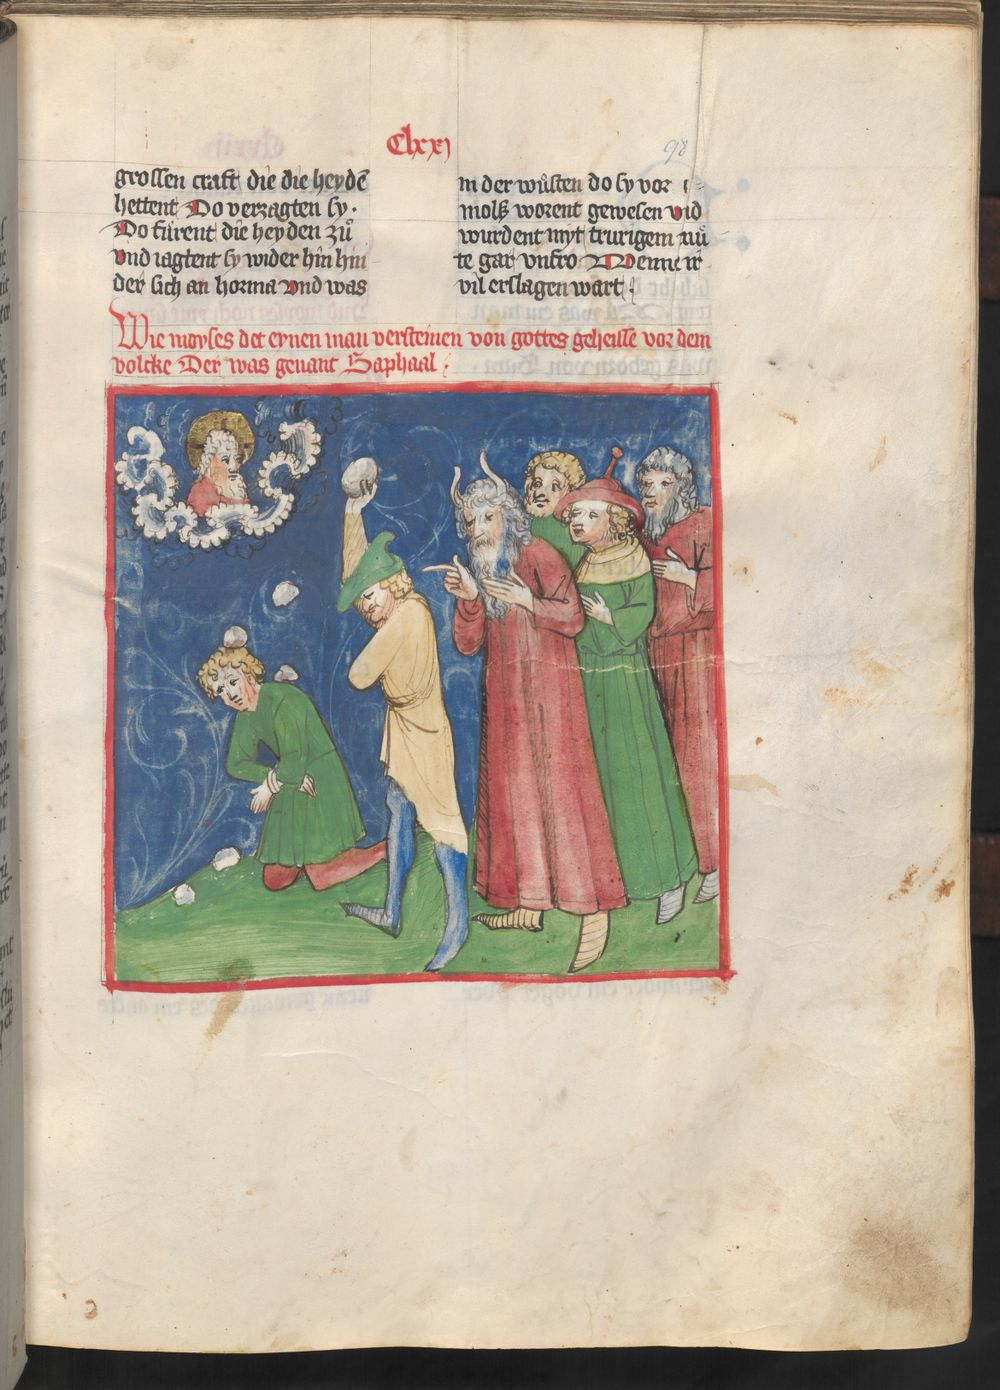 Clxxj
98
grossen craft die die heydē
hettent Do verzagten sy.
Do fůrent die heyden zů
vnd iagtent sy wider hin hin
der sich an horma vnd was
in der wůsten do sy vor
molß worent gewesen vnd
wurdent myt trurigem mů
te gar vnfro Wenne ir
vil erslagen wart
Wie moyses det eynen man versteinen von gottes geheisse vor dem
volcke Der was genant Saphaal